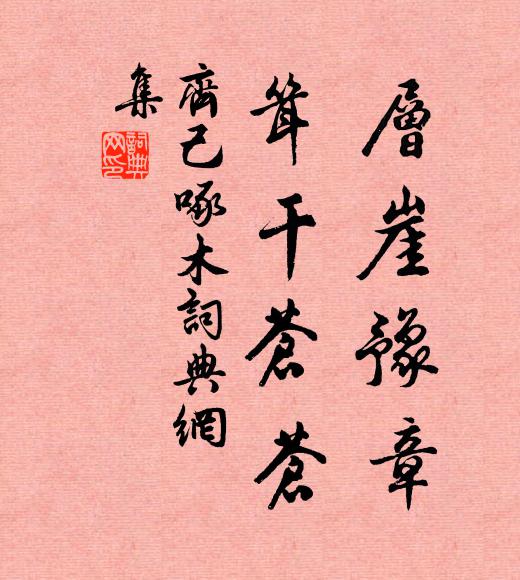 層崖豫章
聳干蒼蒼
齊己啄木詞典網
集
詞典
网印